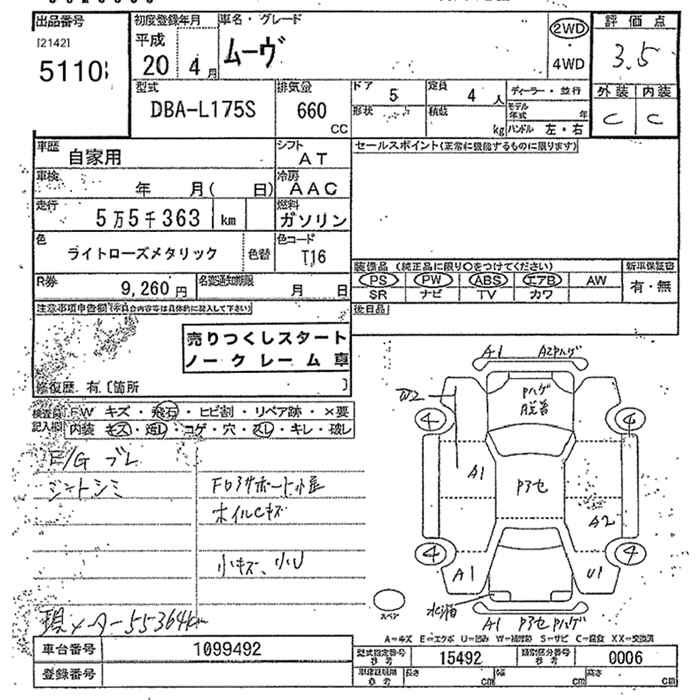 出品番号 初度登録年月 車名・グレード 2WD 評価点
[2142]
5110 平成 20 4月 ムーヴ ・ 4WD 3.5
型式 排気量 ドア 5 定員 4人 ディーラー・並行 外装 内装
DBA-L175S 660 CC 形状 積載 kg モデル年式 年 ハンドル 左・右 C C
車歴 自家用 シフト AT セールスポイント(正常に機能するものに限ります)
車検 年 月( 日) 冷房 AAC
走行 5万5千363 km 燃料 ガソリン
色 ライトローズメタリック 色替 色コード T16
装備品 (純正品に限り○をつけてください) 新車保証書
R券 9,260円 名変通知期限 月 日 PS PW ABS エアB AW 有・無
SR ナビ TV カワ
注意事項申告欄 後日品
売りつくしスタート
ノークレーム車
修復歴 有〔箇所 〕
検査員記入欄 FW キズ・飛石・ヒビ割・リペア跡・×要
内装 キズ・凹・コゲ・穴・スレ・キレ・破レ
シートシミ
ホイルCキズ
小キズ、小U
現メーター55364km
A1 A2Pハゲ
Pハゲ
W2
4 4
A1 Pアセ A2
4 4
A1 U1
スペア
A1 Pアセ Pハゲ
A=キズ E=エクボ U=凹み W=補修跡 S=サビ C=腐食 XX=交換済
車台番号 1099492 型式指定番号 参考 15492 類別区分番号 参考 0006
登録番号 長さ cm 幅 cm 高さ cm